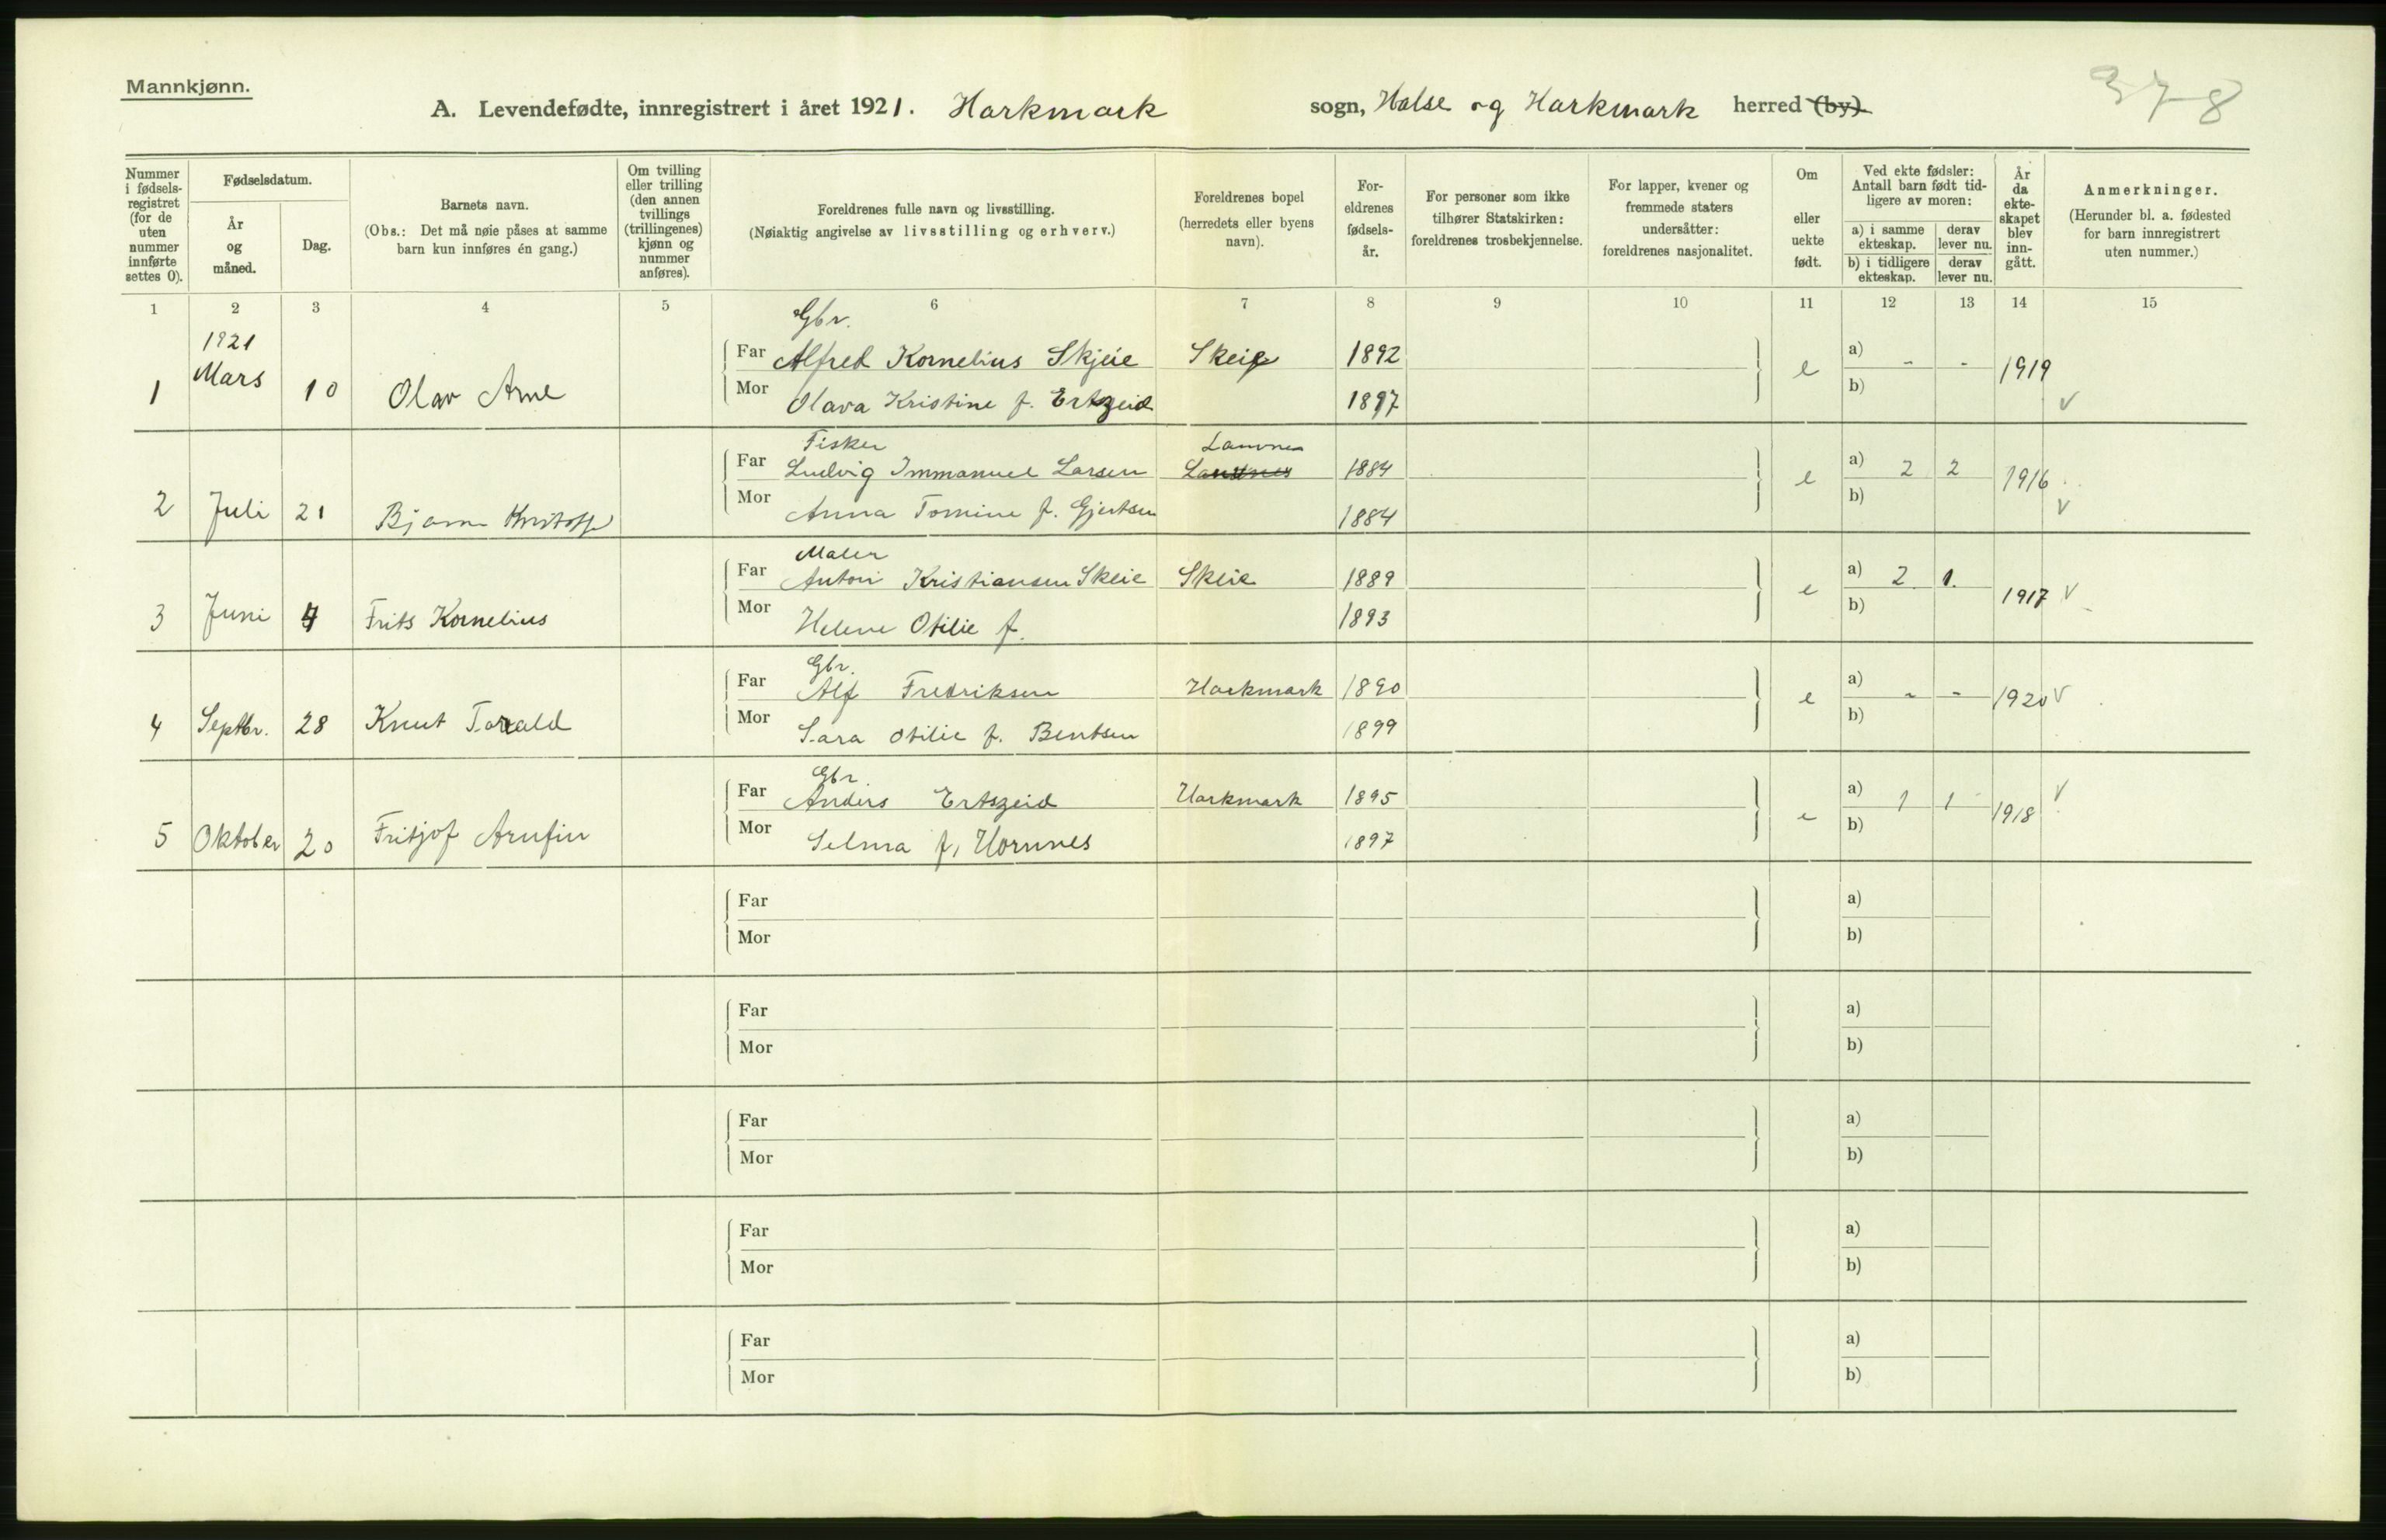 Mannkjønn.
378
A. Levendefødte, innregistrert i året 1921. Harkmark sogn, Halse og Harkmark herred (by).
Nummer i fødselsregistret (for de uten nummer innførte settes 0).
Fødselsdatum.
År og måned.
Dag.
Barnets navn.
(Obs.: Det må nøie påses at samme barn kun innføres én gang.)
Om tvilling eller trilling (den annen tvillings (trillingenes) kjønn og nummer anføres).
Foreldrenes fulle navn og livsstilling.
(Nøiaktig angivelse av livsstilling og erhverv.)
Foreldrenes bopel
(herredets eller byens navn).
Foreldrenes fødselsår.
For personer som ikke tilhører Statskirken: foreldrenes trosbekjennelse.
For lapper, kvener og fremmede staters undersåtter: foreldrenes nasjonalitet.
Om eller uekte født.
Ved ekte fødsler: Antall barn født tidligere av moren:
a) i samme ekteskap.
derav lever nu.
b) i tidligere ekteskap.
derav lever nu.
År da ekteskapet blev inngått.
Anmerkninger.
(Herunder bl. a. fødested for barn innregistrert uten nummer.)
1 2 3 4 5 6 7 8 9 10 11 12 13 14 15
Gbr.
1921
1 Mars 10 Olav Arne Far Alfred Kornelius Skjeie Skeie 1892 e a) - - 1919
Mor Olava Kristine f. Ertzeid 1897 b) v
Fisker Launes
2 Juli 21 Bjarne Kristoffer Far Ludvig Immanuel Larsen 1884 e a) 2 2 1916
Mor Anna Tomine f. Gjertsen 1884 b) v
Maler
3 Juni 4 Frits Kornelius Far Anton Kristiansen Skeie Skeie 1889 e a) 2 1. 1917 v
Mor Helene Otilie f. 1893 b)
Gbr.
4 Septbr. 28 Knut Torald Far Alf Fredriksen Harkmark 1890 e a) - - 1920 v
Mor Sara Otilie f. Bentsen 1899 b)
Gbr.
5 Oktober 20 Fritjof Arnfin Far Anders Ertszeid Harkmark 1895 e a) 1 1 1918 v
Mor Selma f. Hornnes 1897 b)
Far a)
Mor b)
Far a)
Mor b)
Far a)
Mor b)
Far a)
Mor b)
Far a)
Mor b)